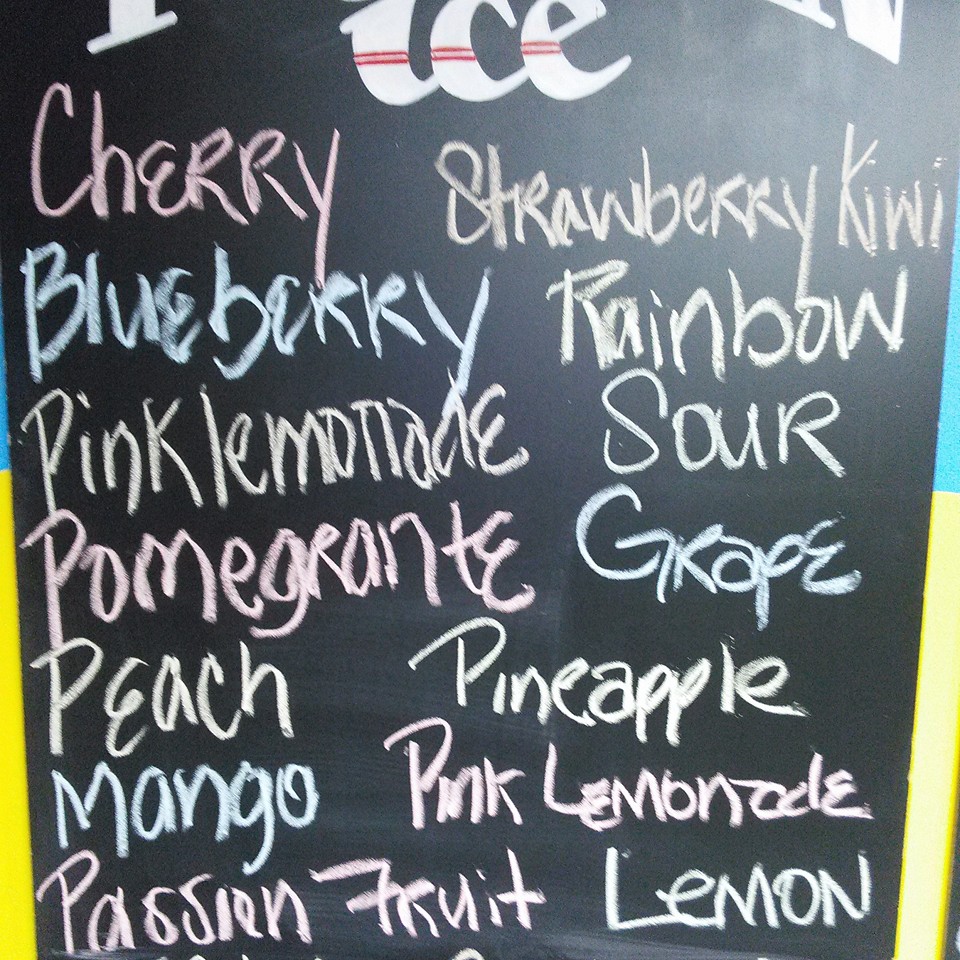 ice
Cherry Strawberry Kiwi
Blueberry Rainbow
Pink lemonade Sour
Pomegrante Grape
Peach Pineapple
Mango Pink Lemonade
Passion Fruit Lemon